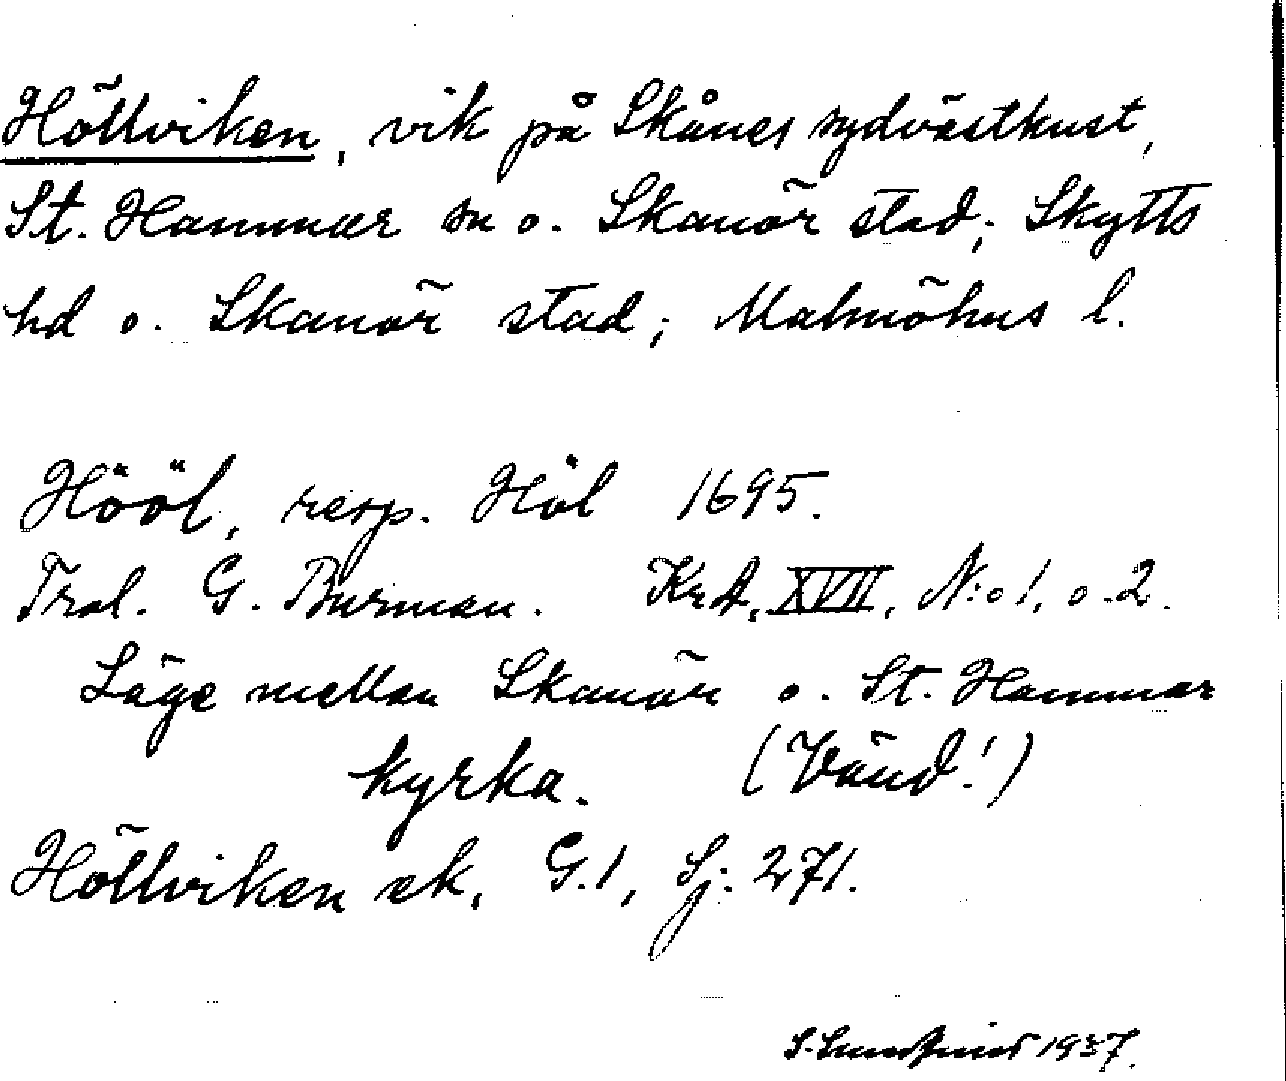 Höllviken, vik på Skånes sydvästkust,
St. Hammar sn o. Skanör stad; Skytts
hd o. Skanör stad; Malmöhus l.
Hööl, resp. Höl 1695.
G. Burman. KrA, XVII, N:o 1, o. 2.
Läge mellan Skanör o. St. Hammar
kyrka. (Vänd!)
Höllviken ek. G.1, Sj. 271.
1937.